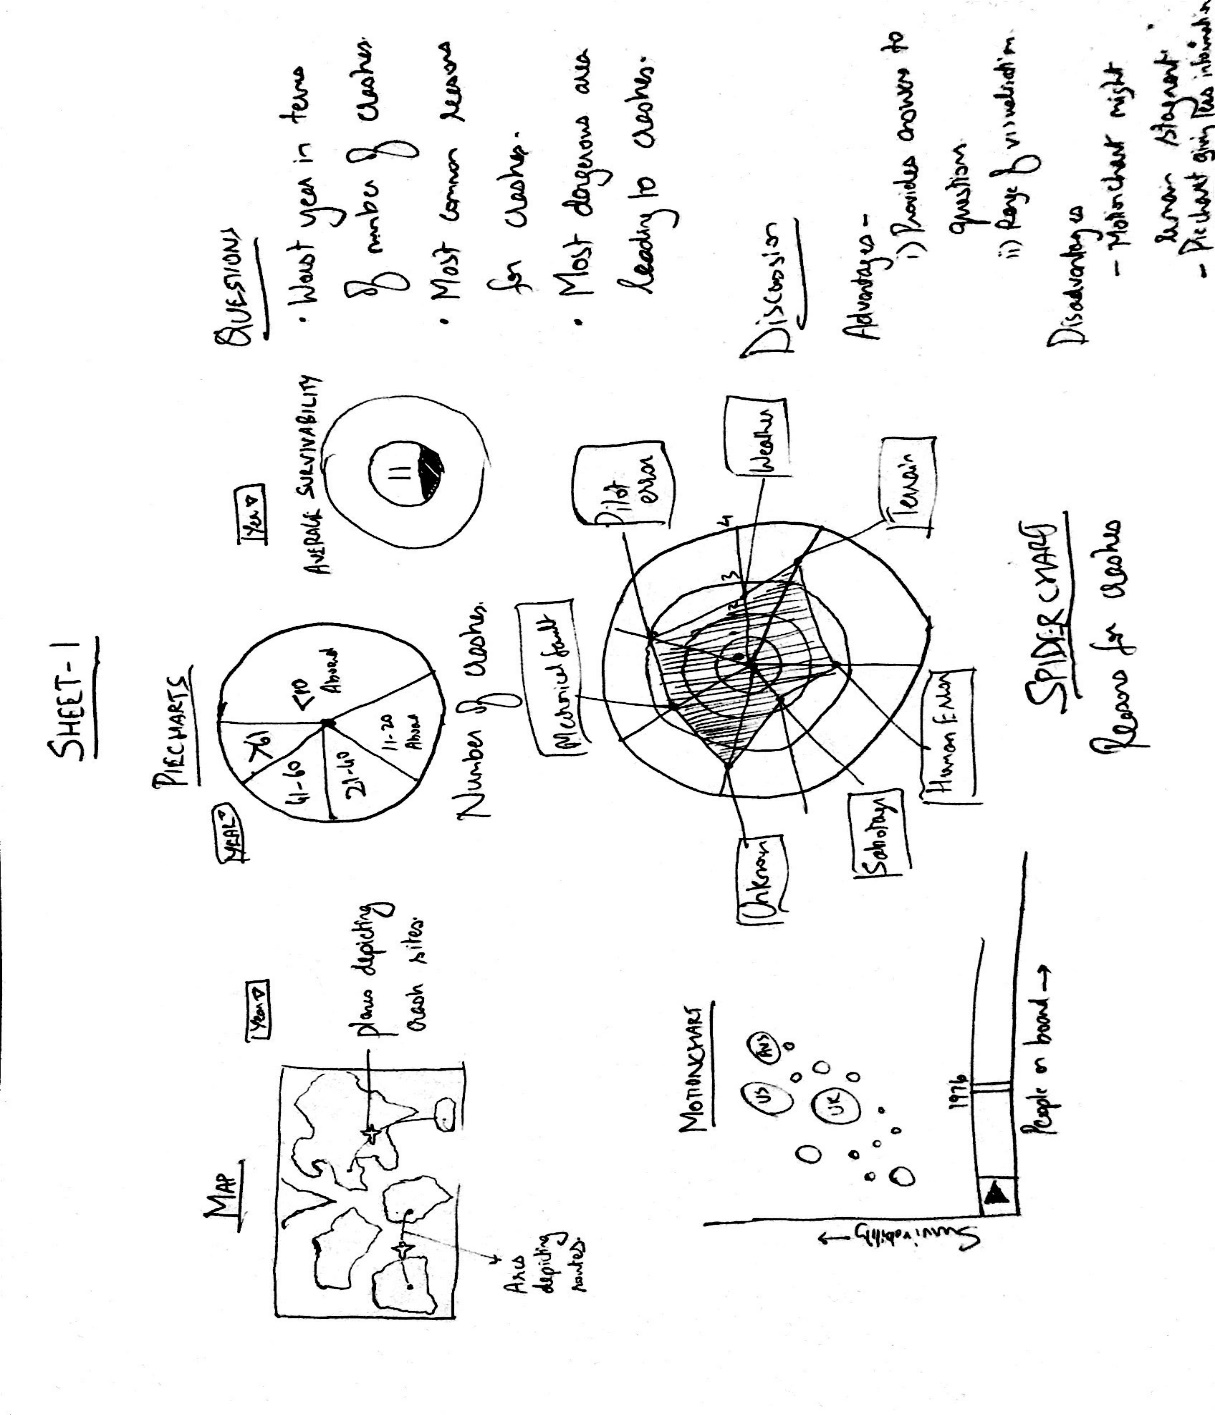 SHEET-1
MAP
Year ▽
planes depicting
crash sites.
Arcs
depicting
routes.
PIECHARTS
YEAR ▽
<10
Aboard
11-20
Aboard
21-40
41-60
>61
Number of crashes.
Year ▽
AVERAGE SURVIVABILITY
11
QUESTIONS
• Worst year in terms
of number of crashes.
• Most common reasons
for crashes.
• Most dangerous area
leading to crashes.
MOTIONCHART
US
AUS
UK
1976
Survivability →
People on board →
Mechnical fault
Pilot
error
Weather
Terrain
Human Error
Sabotage
Unknown
2
3
4
SPIDER CHART
Reasons for crashes
Discussion
Advantages -
i) Provides answers to
questions
ii) Range of visualisation.
Disadvantages
- Motionchart might
remain stagnant.
- Piechart giving less information